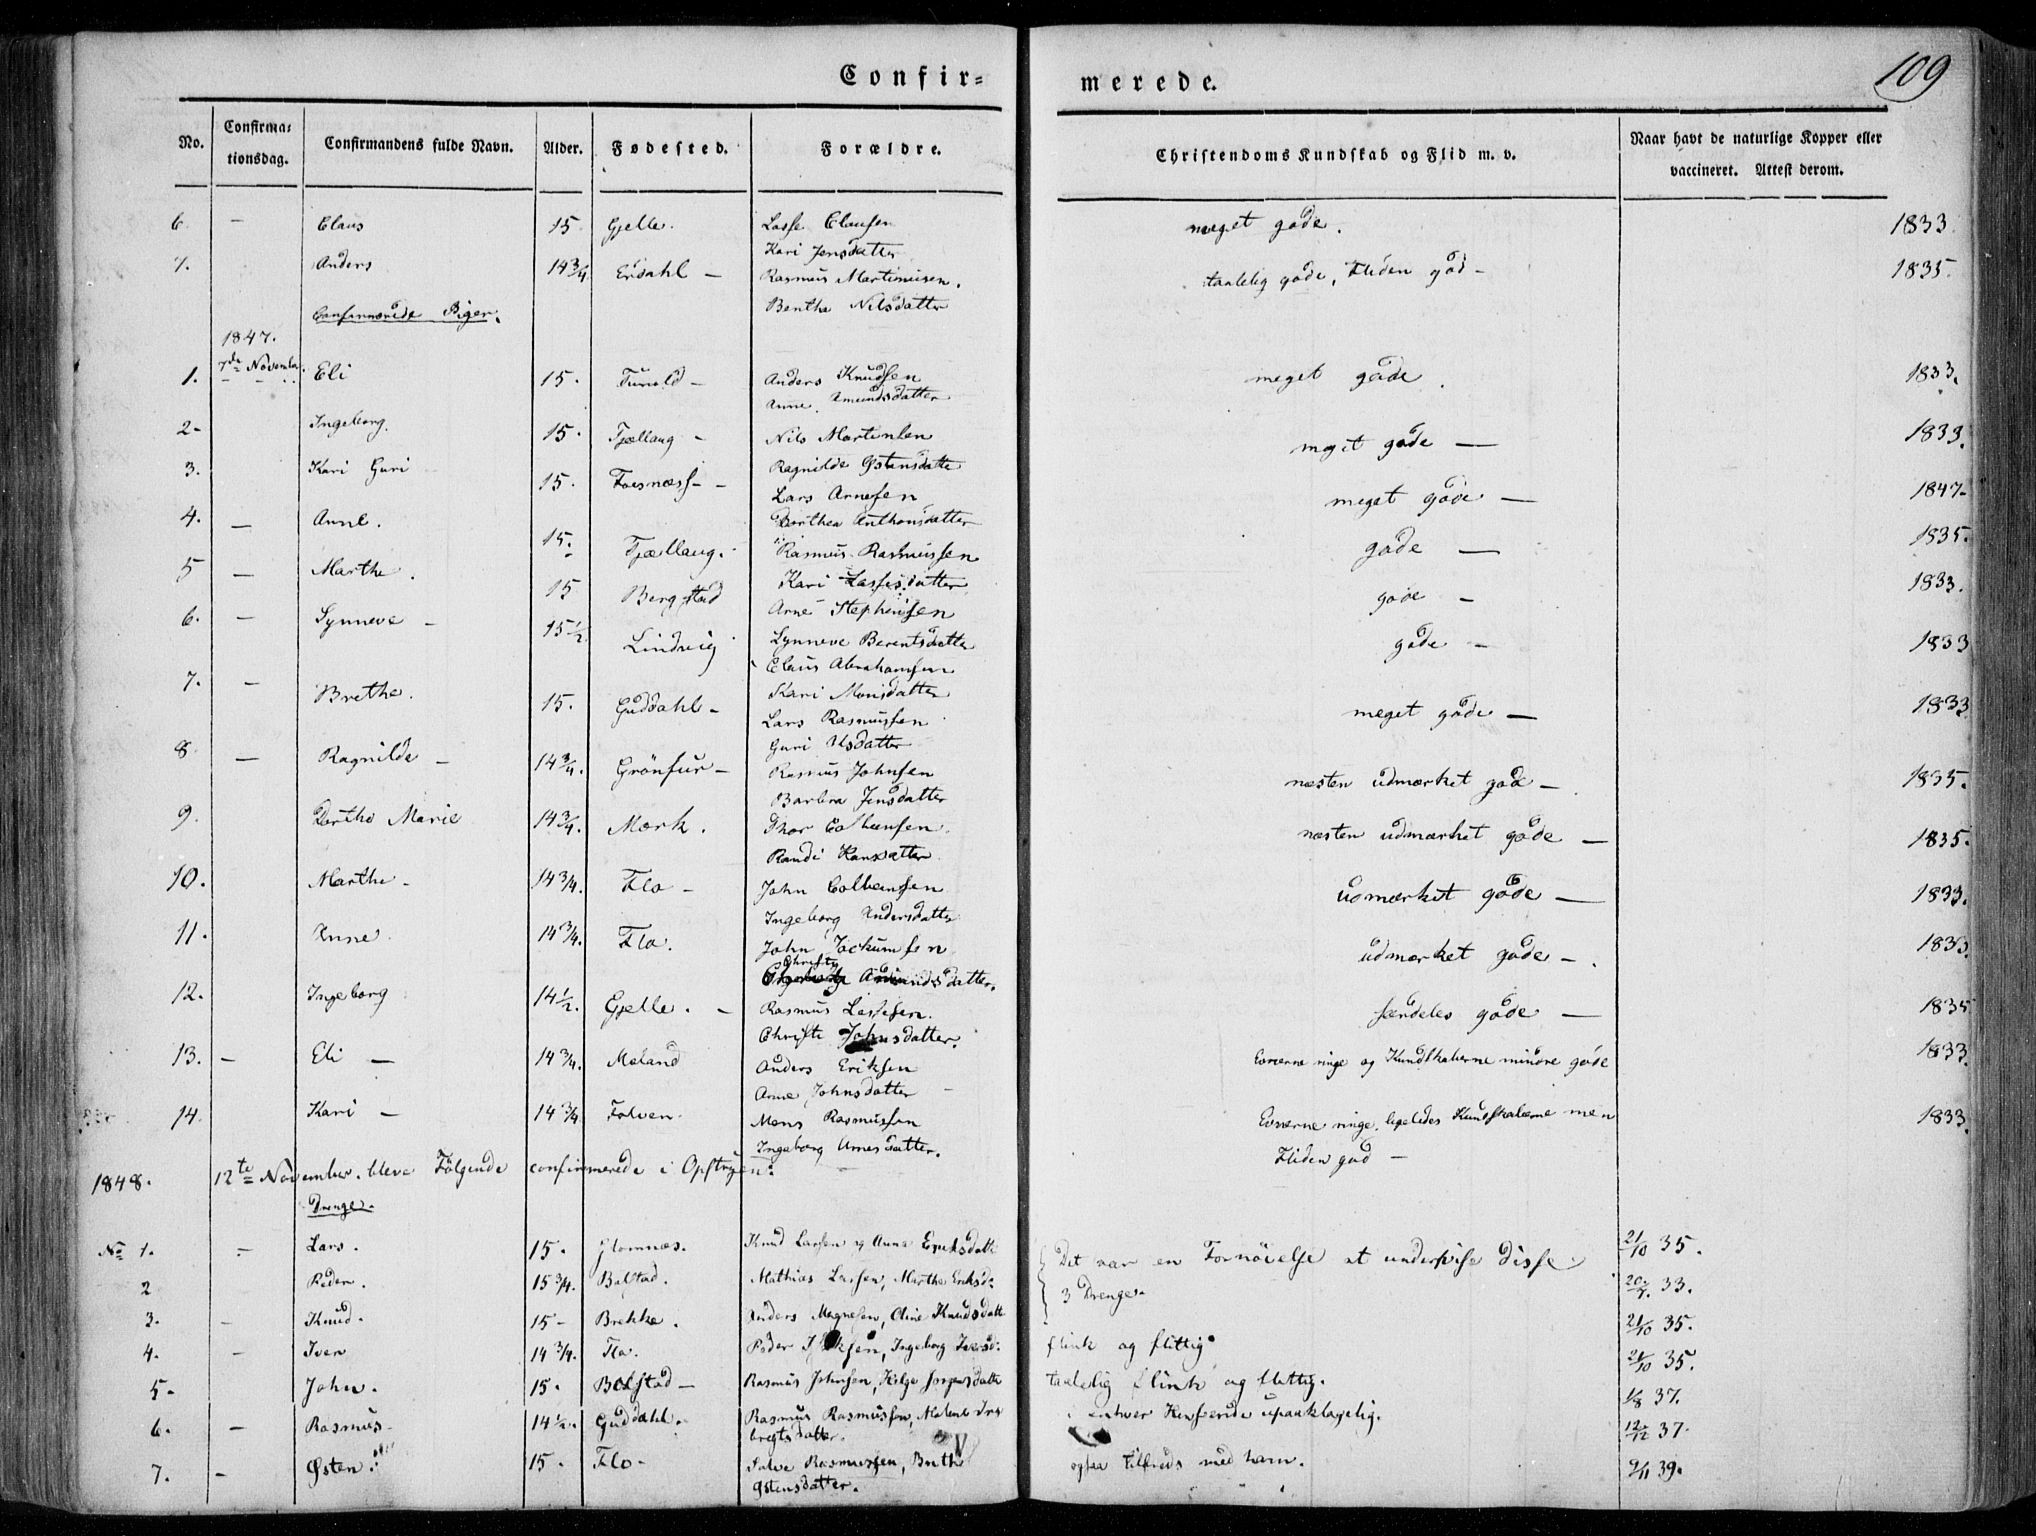 Confir=
merede.
109
No. Confirmationsdag. Confirmandens fulde Navn. Alder. Fødested. Forældre. Christendoms Kundskab og Flid m. v. Naar havt de naturlige Kopper eller vaccineret. Attest derom.
6. — Claus 15 Gjelle. Lasse Clausen meget gode. 1833
Kari Jensdatter
7. Anders 14 3/4 Erdahl — Rasmus Martinusen. taalelig gode, Fliden god — 1835.
Benthe Nilsdatter
Confirmerede Piger.
1847.
1. 7de November Eli 15. Anders Knudsen meget gode. 1833.
Anne Amundsdatter
2- Ingeborg. 15. Tjellaug — Nils Martensen meget gode — 1833.
Ragnilde Østensdatter
3. Kari Guri 15. Fosnæss — Lars Arnesen meget gode — 1847-
Dorthea Anthonsdatter
4. — Anne. 15. Tjællaug. Rasmus Rasmussen gode — 1835.
Kari Lasses datter
5 — Marthe. 15 Bergstad Arne Stephensen gode — 1833.
Synneve Berentsdatter
6. — Synneve — 15 1/2 Lindvig Claus Abrahamsen gode — 1833
Kari Monsdatter
7. — Brethe. 15. Guddahl — Lars Rasmussen meget gode — 1833
Guri datter
8. — Ragnilde — 14 3/4. Grönfur — Rasmus Johnsen næsten udmærket gode — 1835.
Barbra Jensdatter
9. Dorthe Marie 14 3/4. Mork. Thor Colbensen næsten udmærket gode — 1835.
Randi Hansdatter
10. Marthe — 14 3/4. Flo — John Colbensen udmærket gode — 1833.
Ingeborg Andersdatter
11. Anne. 14 3/4. Flo. John Jockumsen udmærket gode —. 1833.
Christi Amundsdatter.
12. Ingeborg 14 1/2. Gjelle. — Rasmus Lassesen. særdeles gode — 1835
Christi Johnsdatter.
13. — Eli — 14 3/4. Meland Anders Eriksen Evnerne ringe og Kundskaberne mindre gode 1833
Anne Johnsdatter —
14. Kari — 14 3/4 Folven. Mons Rasmussen Evnerne ringe, ligeledes Kundskaberne men 1833.
Ingeborg Arnes datter. Fliden god —
1848. 12te November bleve Følgende confirmerede i Opstryen:
Drenge.
No 1. — Lars. 15. Glomnæs. Knud Larsen og Anne Eriksdatt Det var en Fornöielse at underviise disse 21/10 35.
2 Peder. 15 3/4. Bolstad. Mathias Lassen, Marthe Eriksd: 3 Drenge. 20/7. 33.
3. — Knud. 15 — Brekke. Anders Magnesen, Oline Knudsdatt 21/10 35.
4. — Iver 14 3/4. Flo. Peder , Ingeborg Iversd: flink og flittig. 21/10 35.
5. — John. 15. Bolstad — Rasmus Johnsen, Helge Jørgensdatter taalelig flink og flittig. 1/8 37.
6. — Rasmus. 14 1/2. Guddahl. Rasmus Rasmussen, Malene Ing i enhver Henseende upaaklagelig. 12/12 37.
bregtsdatter.
7. — Østen. 15. Flo. Salve Rasmussen, Brithe ogsaa tilfreds med ham. 9/11 39.
Østensdatter.